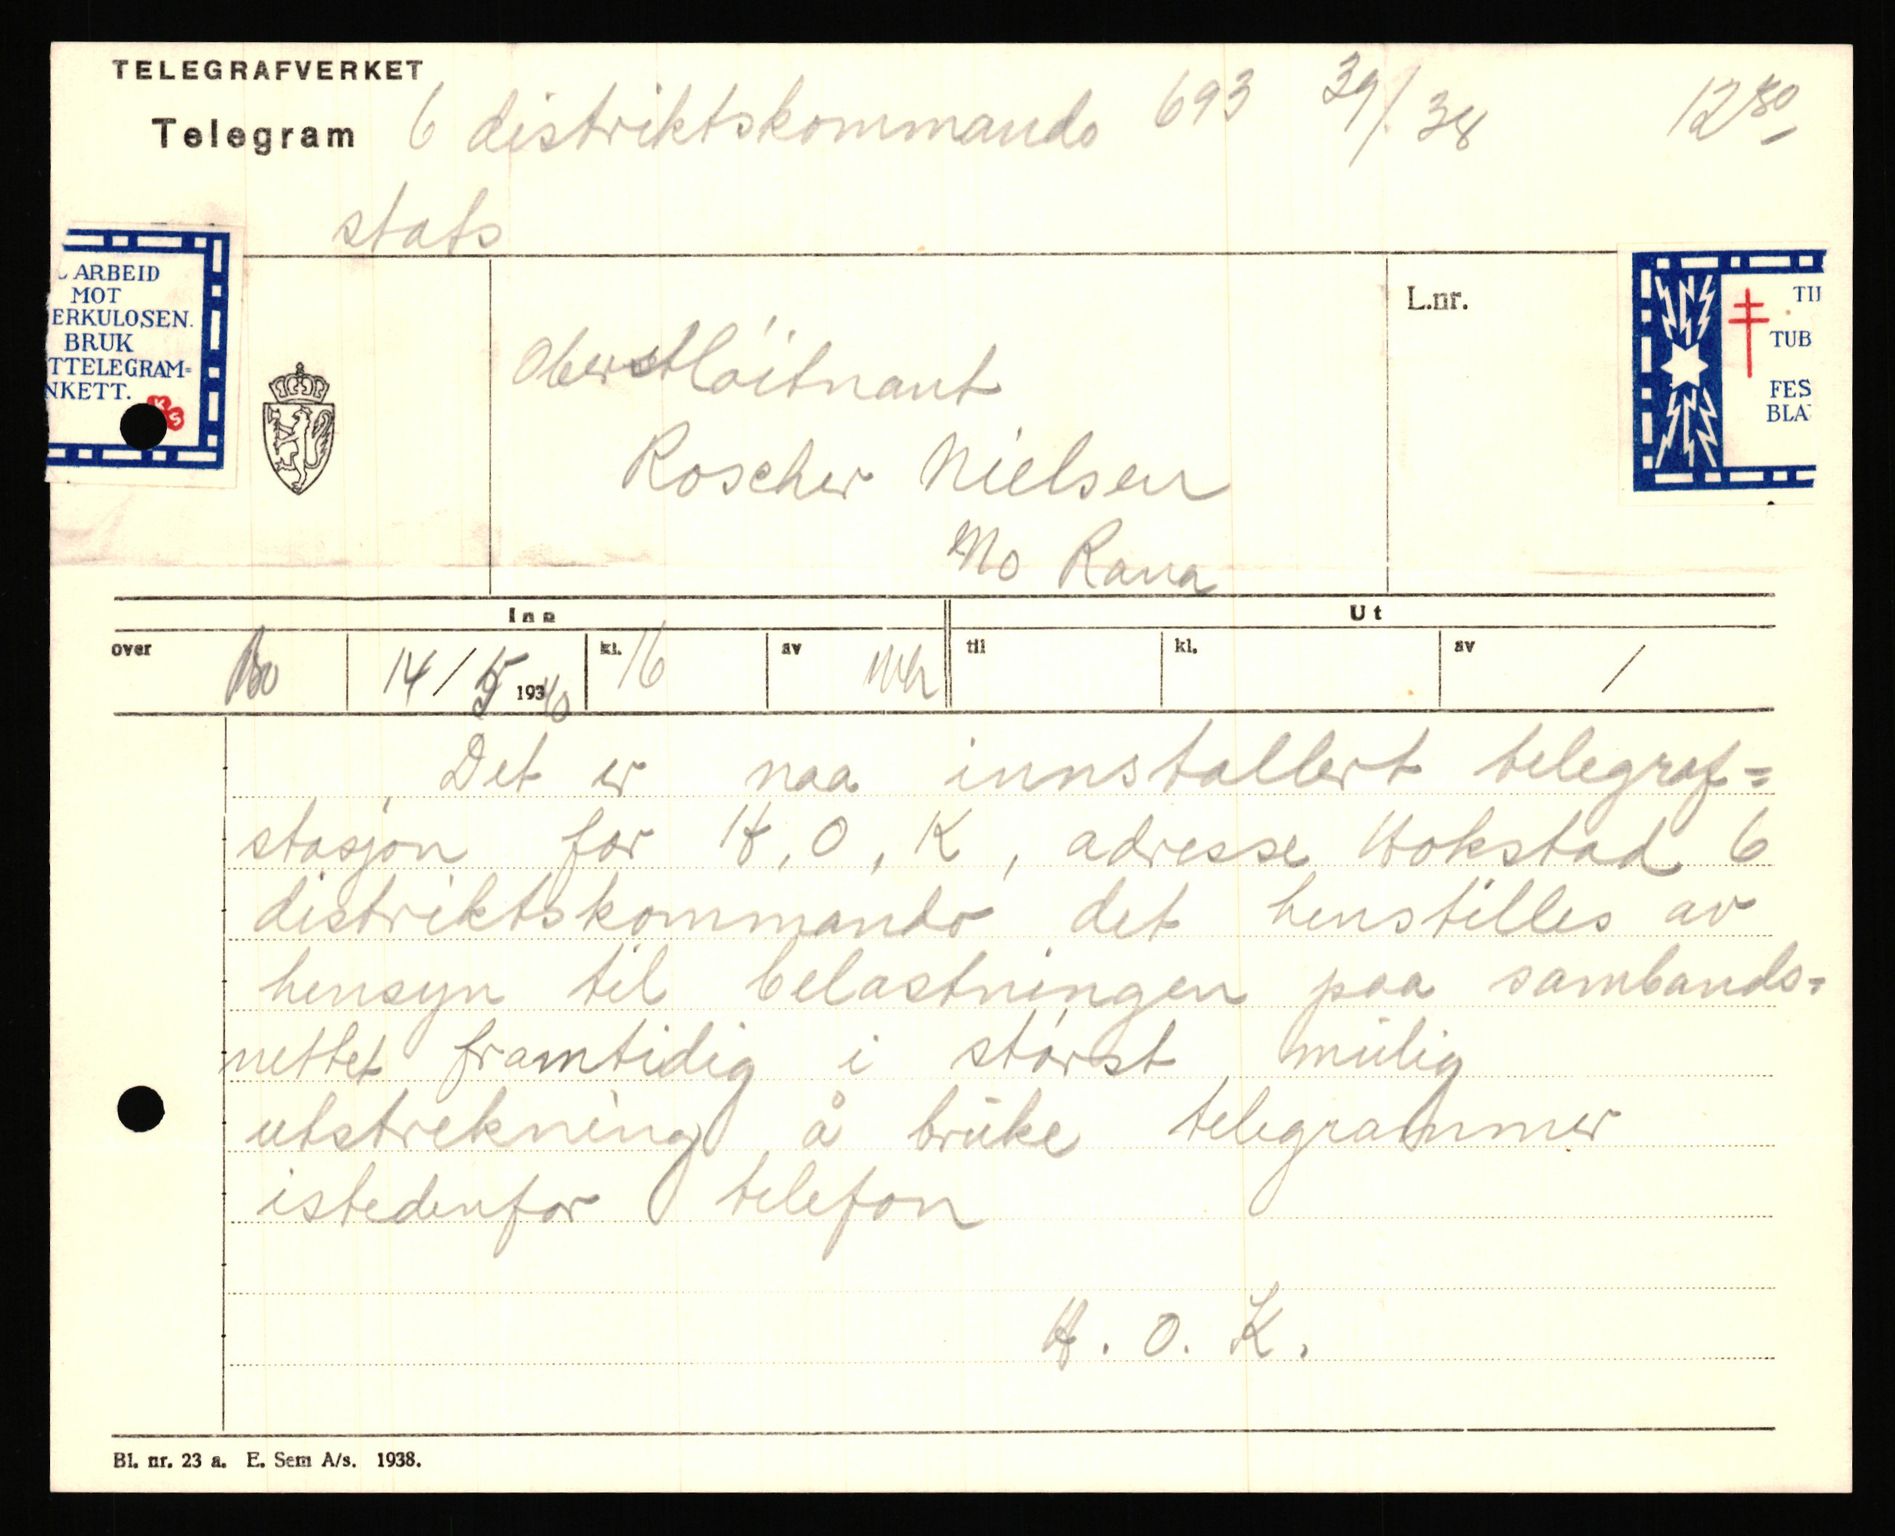 TELEGRAFVERKET
Telegram
6 distriktskommando 693 39/38 12 30
stats
ARBEID
MOT
ERKULOSEN.
BRUK
TTELEGRAM=
NKETT.
KS
Oberstløitnant
Roscher Nielsen
Mo Rana
L.nr.
TUB
FES
BLA
Inn Ut
over Bo 14/5 1940 kl. 16 av til kl. av /
Det er naa innstallert telegraf=
stasjon for H, O, K, adresse Hokstad 6
distriktskommando det henstilles av
hensyn til belastningen paa sambands=
nettet framtidig i størst mulig
utstrekning å bruke telegrammer
istedenfor telefon
H. O. K.
Bl. nr. 23 a. E. Sem A/s. 1938.